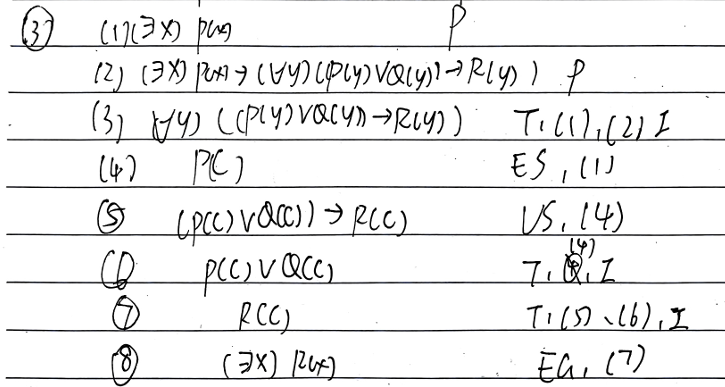 ③ (1) (∃x) P(x) P
(2) (∃x) P(x) → (∀y) ((P(y)∨Q(y)) → R(y)) P
(3) (∀y) ((P(y)∨Q(y)) → R(y)) T,(1),(2) I
(4) P(C) ES,(1)
⑤ (P(C)∨Q(C)) → R(C) US,(4)
⑥ P(C)∨Q(C) T,(4),I
⑦ R(C) T,(5)、(6),I
⑧ (∃x) R(x) EG,(7)